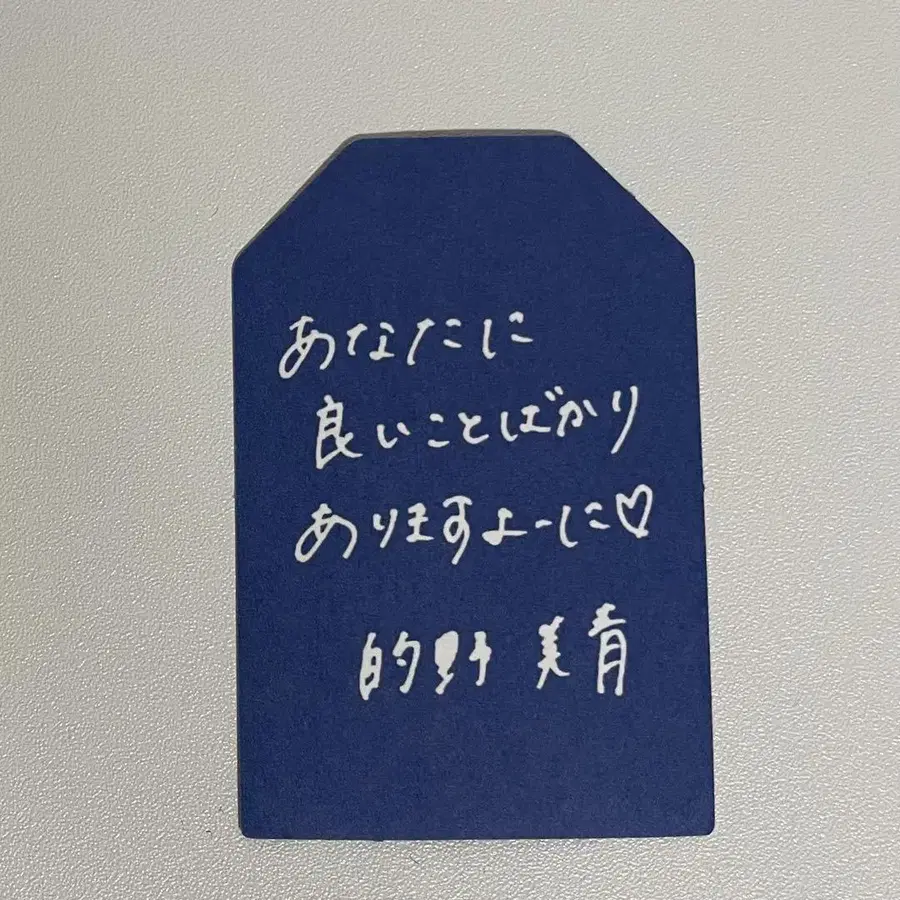 あなたに
良いことばかり
ありますよーに♡
的野 美青